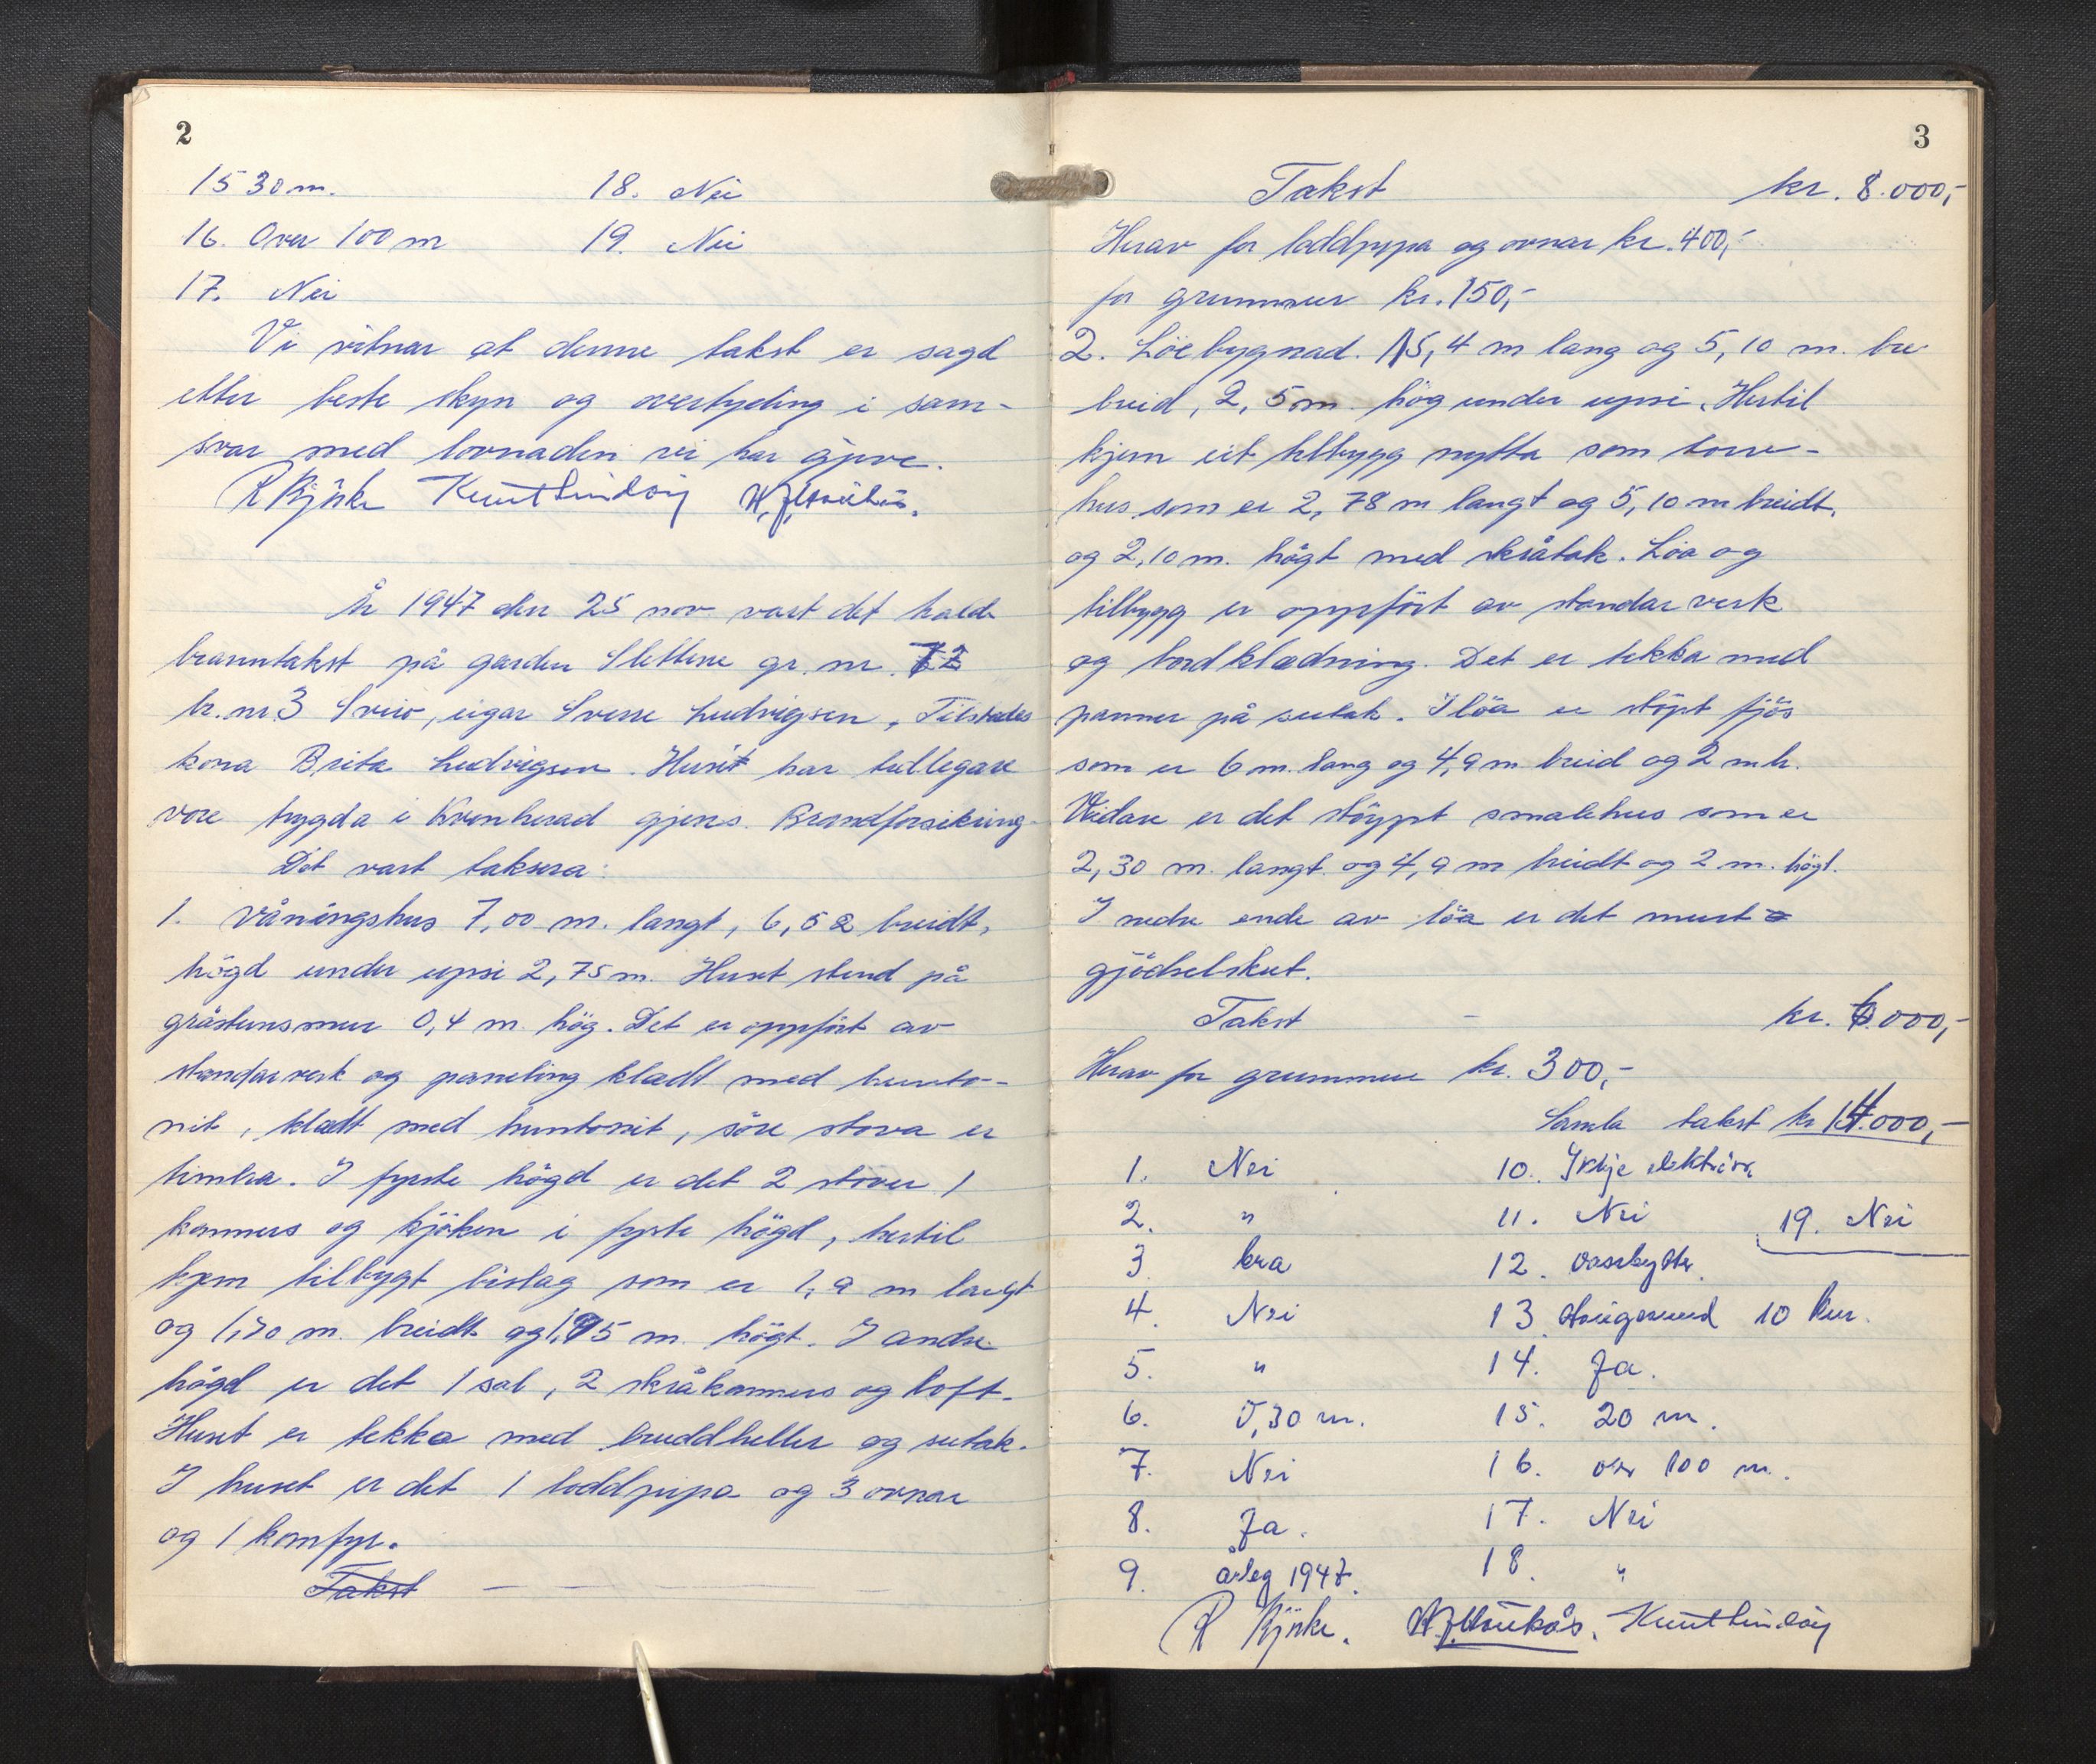 2
15 30 m. 18. Nei
16. Over 100 m 19. Nei
17. Nei
Vi vitnar at denne takst er sagd
etter beste skyn og overtyding i sam-
svar med lovnaden vi har gjeve.
R Bjørke Knut Lindøy
År 1947 den 25 nov vart det halde
branntakst på garden Slettene gr. nr.
br. nr 3 Sveio, eigar Sverre Ludvigsen, Tilstades
kona Brita Ludvigsen. Huset har tidlegare
vore trygda i Kvinherad gjens. Brandforsikring
Det vart taksera:
1. Våningshus 7,00 m. langt, 6,52 breidt,
høgd under upsi 2,75 m. Huset stend på
gråsteinsmur 0,4 m. høg. Det er oppført av
standarverk og paneling klædt med hunto-
nit, klædt med huntonit, søre stova er
timbra. I fyrste høgd er det 2 stover 1
kammers og kjøken i fyrste høgd, hertil
kjem tilbygt bislag som er 1,9 m langt
og 1,70 m. breidt og 1,95 m. høgt. I andre
høgd er det 1 sal, 2 skråkammers og loft.
Huset er tekka med bruddheller og sutak.
I huset er det 1 loddpipa og 3 ovnar
og 1 komfyr.
Takst
3
Takst kr. 8.000,-
Herav for loddpipa og ovnar kr. 400,-
for grunnmur kr. 150,-
2. Løebygnad. 15,4 m lang og 5,10 m. bre
breid, 2,5 m. høg under upsi. Hertil
kjem eit tilbygg nytta som torv-
hus som er 2,78 m langt og 5,10 m breidt.
og 2,10 m. høgt med skråtak. Løa og
tilbygg er oppført av standarverk
og bordklædning. Det er tekka med
panner på sutak. I løa er støpt fjøs
som er 6 m. lang og 4,9 m breid og 2 m h.
Vidare er det støypt smalehus som er
2,30 m. langt og 4,9 m breidt og 2 m. høgt.
I nedre ende av løa er det murt
gjødselskut.
Takst - kr. 6.000,-
Herav for grunnmur kr. 300,-
Samla takst kr 14.000,-
1. Nei 10. Ikkje elektrisk
2. " 11. Nei 19. Nei
3. bra 12. vassbytte
4. Nei 13. Haugesund 10 km.
5. " 14. Ja.
6. 0,30 m. 15. 20 m.
7. Nei 16. over 100 m.
8. Ja. 17. Nei
9. årleg 1947. 18. "
R Bjørke. Knut Lindøy